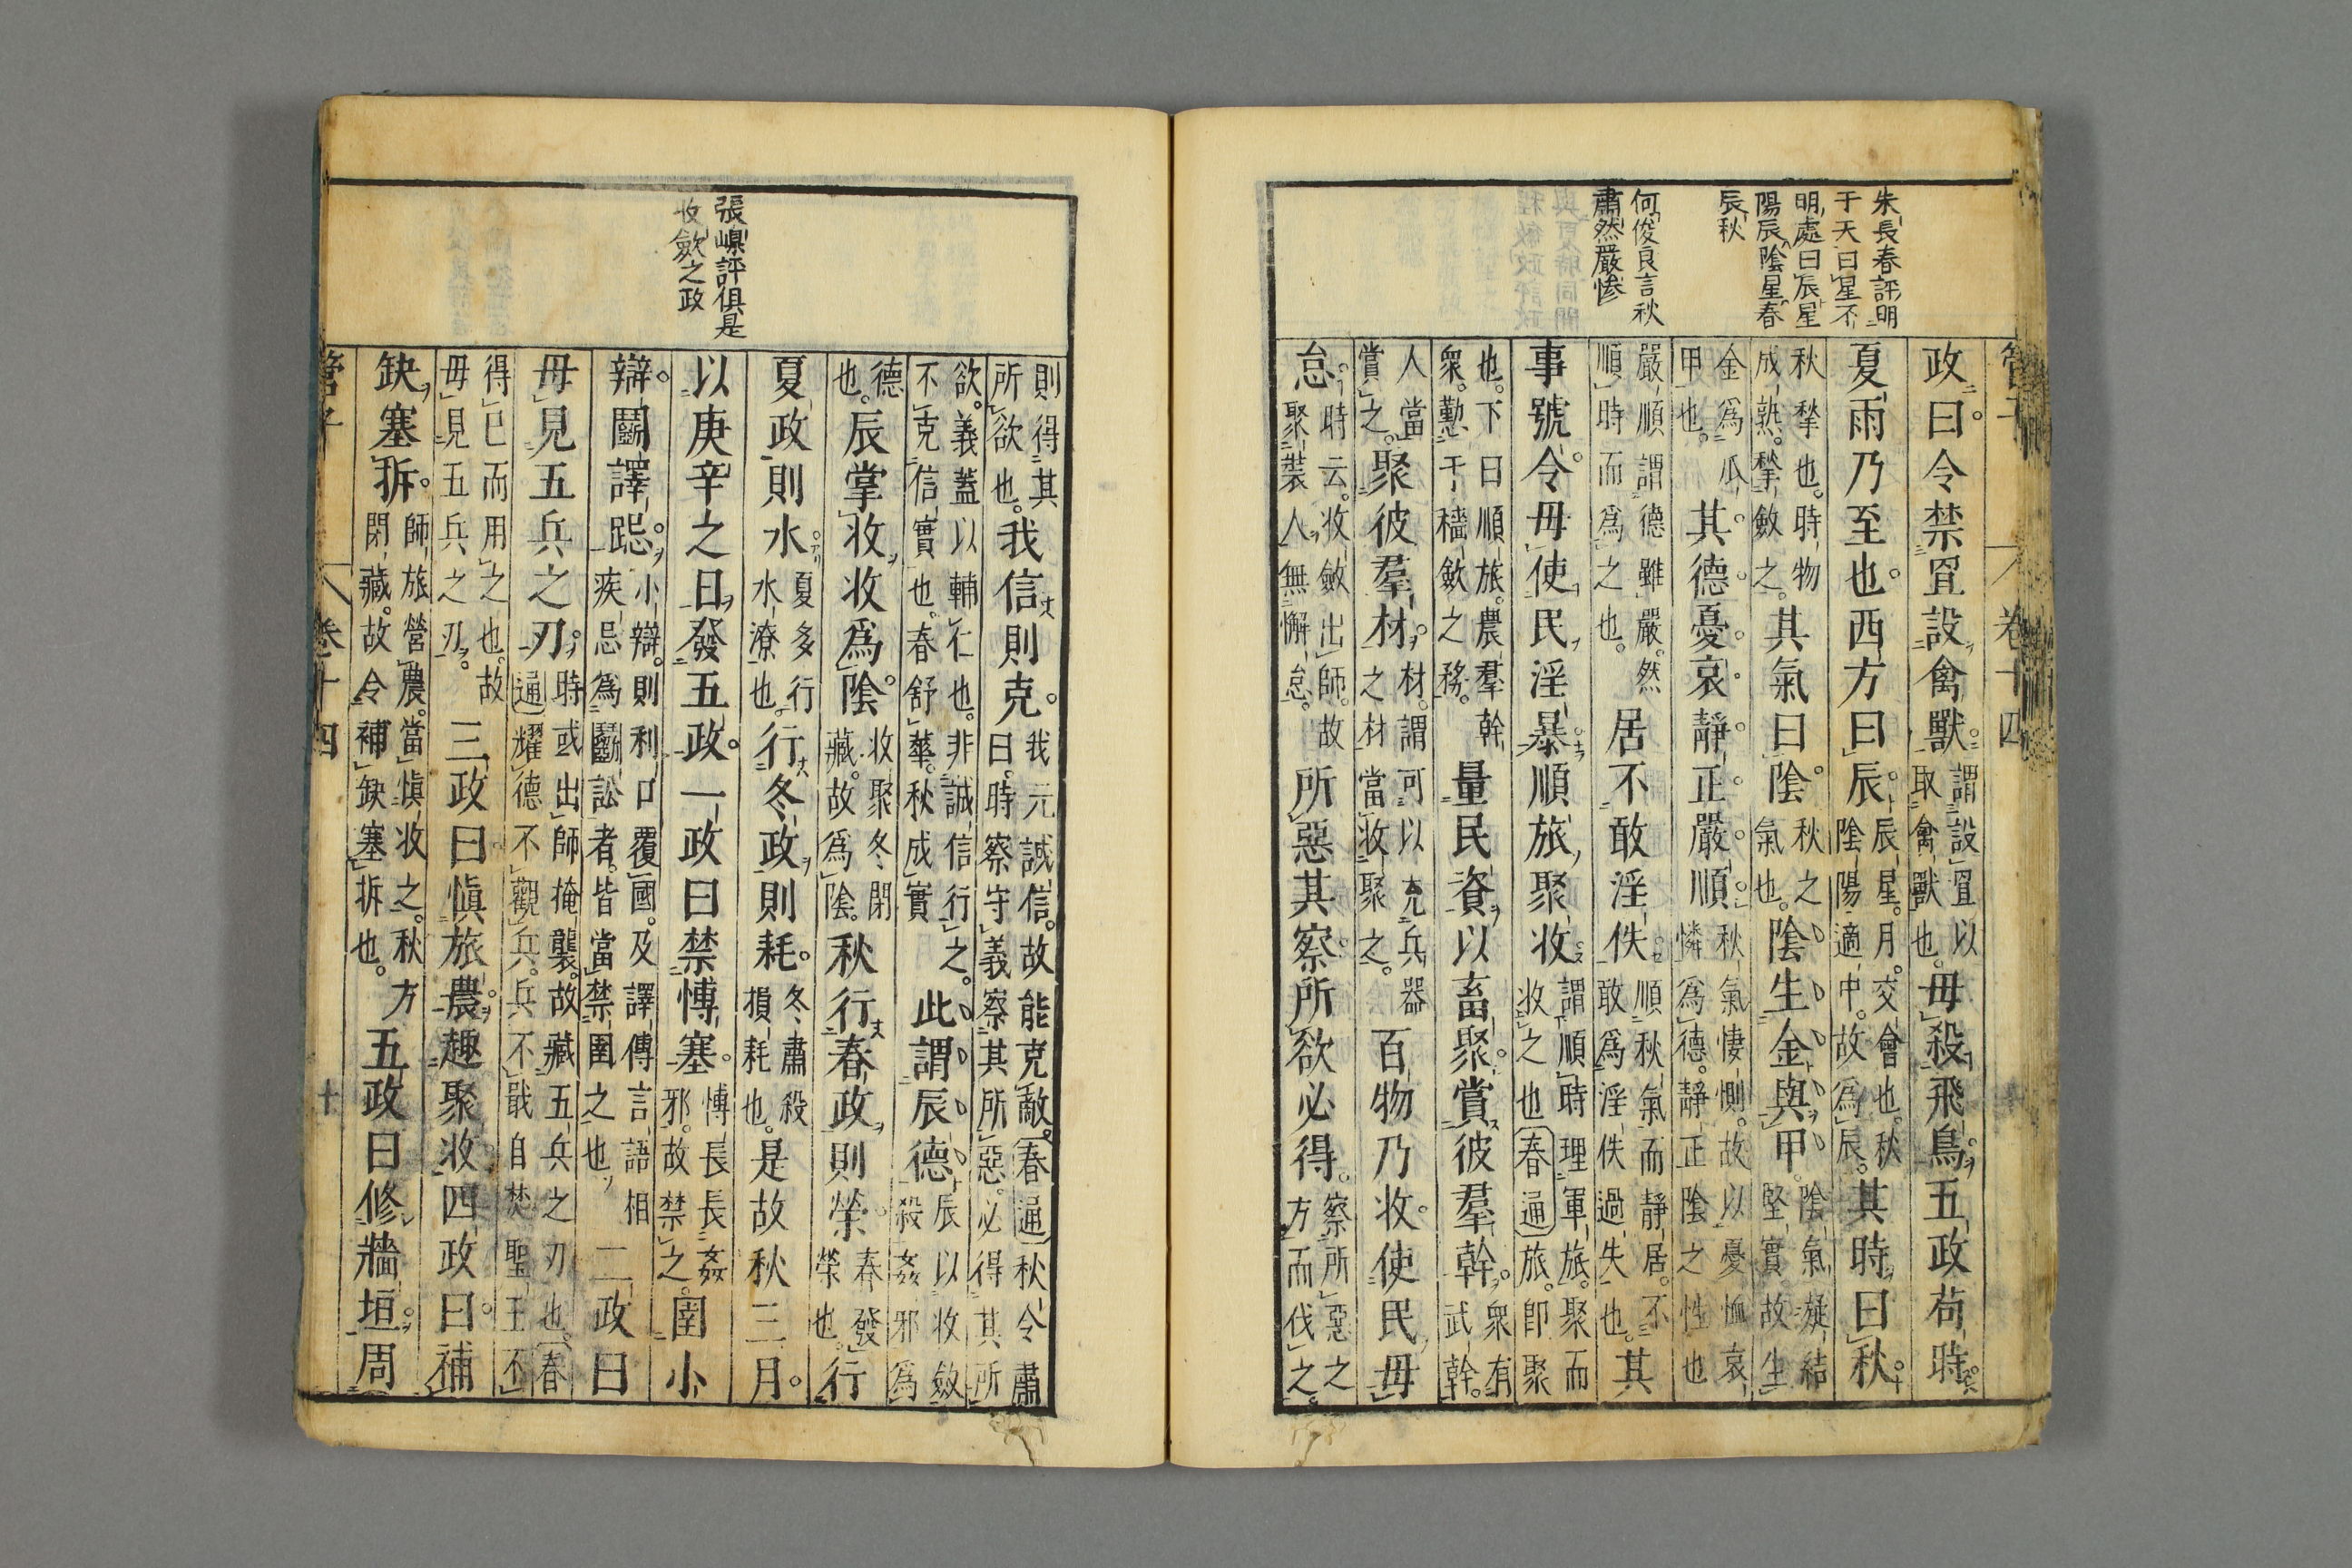 朱長春評明
于天曰星不
明處曰辰星
陽辰陰星春
辰秋
何俊良言秋
肅然嚴慘
卷十四
政曰令禁罝設禽獸謂設罝以取禽獸也毋殺飛鳥五政苟時
夏雨乃至也西方曰辰辰星月交會也秋陰陽適中故爲辰其時曰秋
秋揫也時物成熟揫斂之其氣曰陰秋之氣也陰生金與甲陰氣凝結堅實故生
金爲瓜甲也其德憂哀靜正嚴順秋氣悽惻故以憂恤哀憐爲德靜正陰之性也
嚴順謂德雖嚴然順時而爲之也居不敢淫佚順秋氣而靜居不敢爲淫佚過失也其
事號令毋使民淫暴順旅聚收謂順時理軍旅聚而收之也春通旅即聚
也下曰順旅農羣幹衆懃于穡斂之務量民資以畜聚賞彼羣幹衆有武幹
人當賞之聚彼羣材材謂可以充兵器之材當收聚之百物乃收使民毋
怠時云收斂出師故聚裝人無懈怠所惡其察所欲必得察所惡之方而伐之
張嵲評俱是
收斂之政
則得其所欲也我信則克我元誠信故能克敵春通秋令肅曰時察守義察其所惡必得其所
欲義蓋以輔仁也非誠信行之不克信實也春舒華秋成實此謂辰德辰以收斂殺姦邪爲
德也辰掌收收爲陰收聚冬閉藏故爲陰秋行春政則榮春發榮也行
夏政則水夏多行水潦也行冬政則耗冬肅殺損耗也是故秋三月
以庚辛之日發五政一政曰禁愽塞愽長長姦邪故禁之圉小
辯鬭譯跽小辯則利口覆國及譯傳言語相疾忌爲鬭訟者皆當禁圉之也二政曰
毋見五兵之刃時或出師掩襲故藏五兵之刃也春通耀德不觀兵兵不戢自焚聖王不
得已而用之也故毋見五兵之刃三政曰愼旅農趣聚收四政曰補
缺塞坼師旅營農當愼收之秋方閉藏故令補缺塞坼也五政曰修牆垣周
卷十四
十